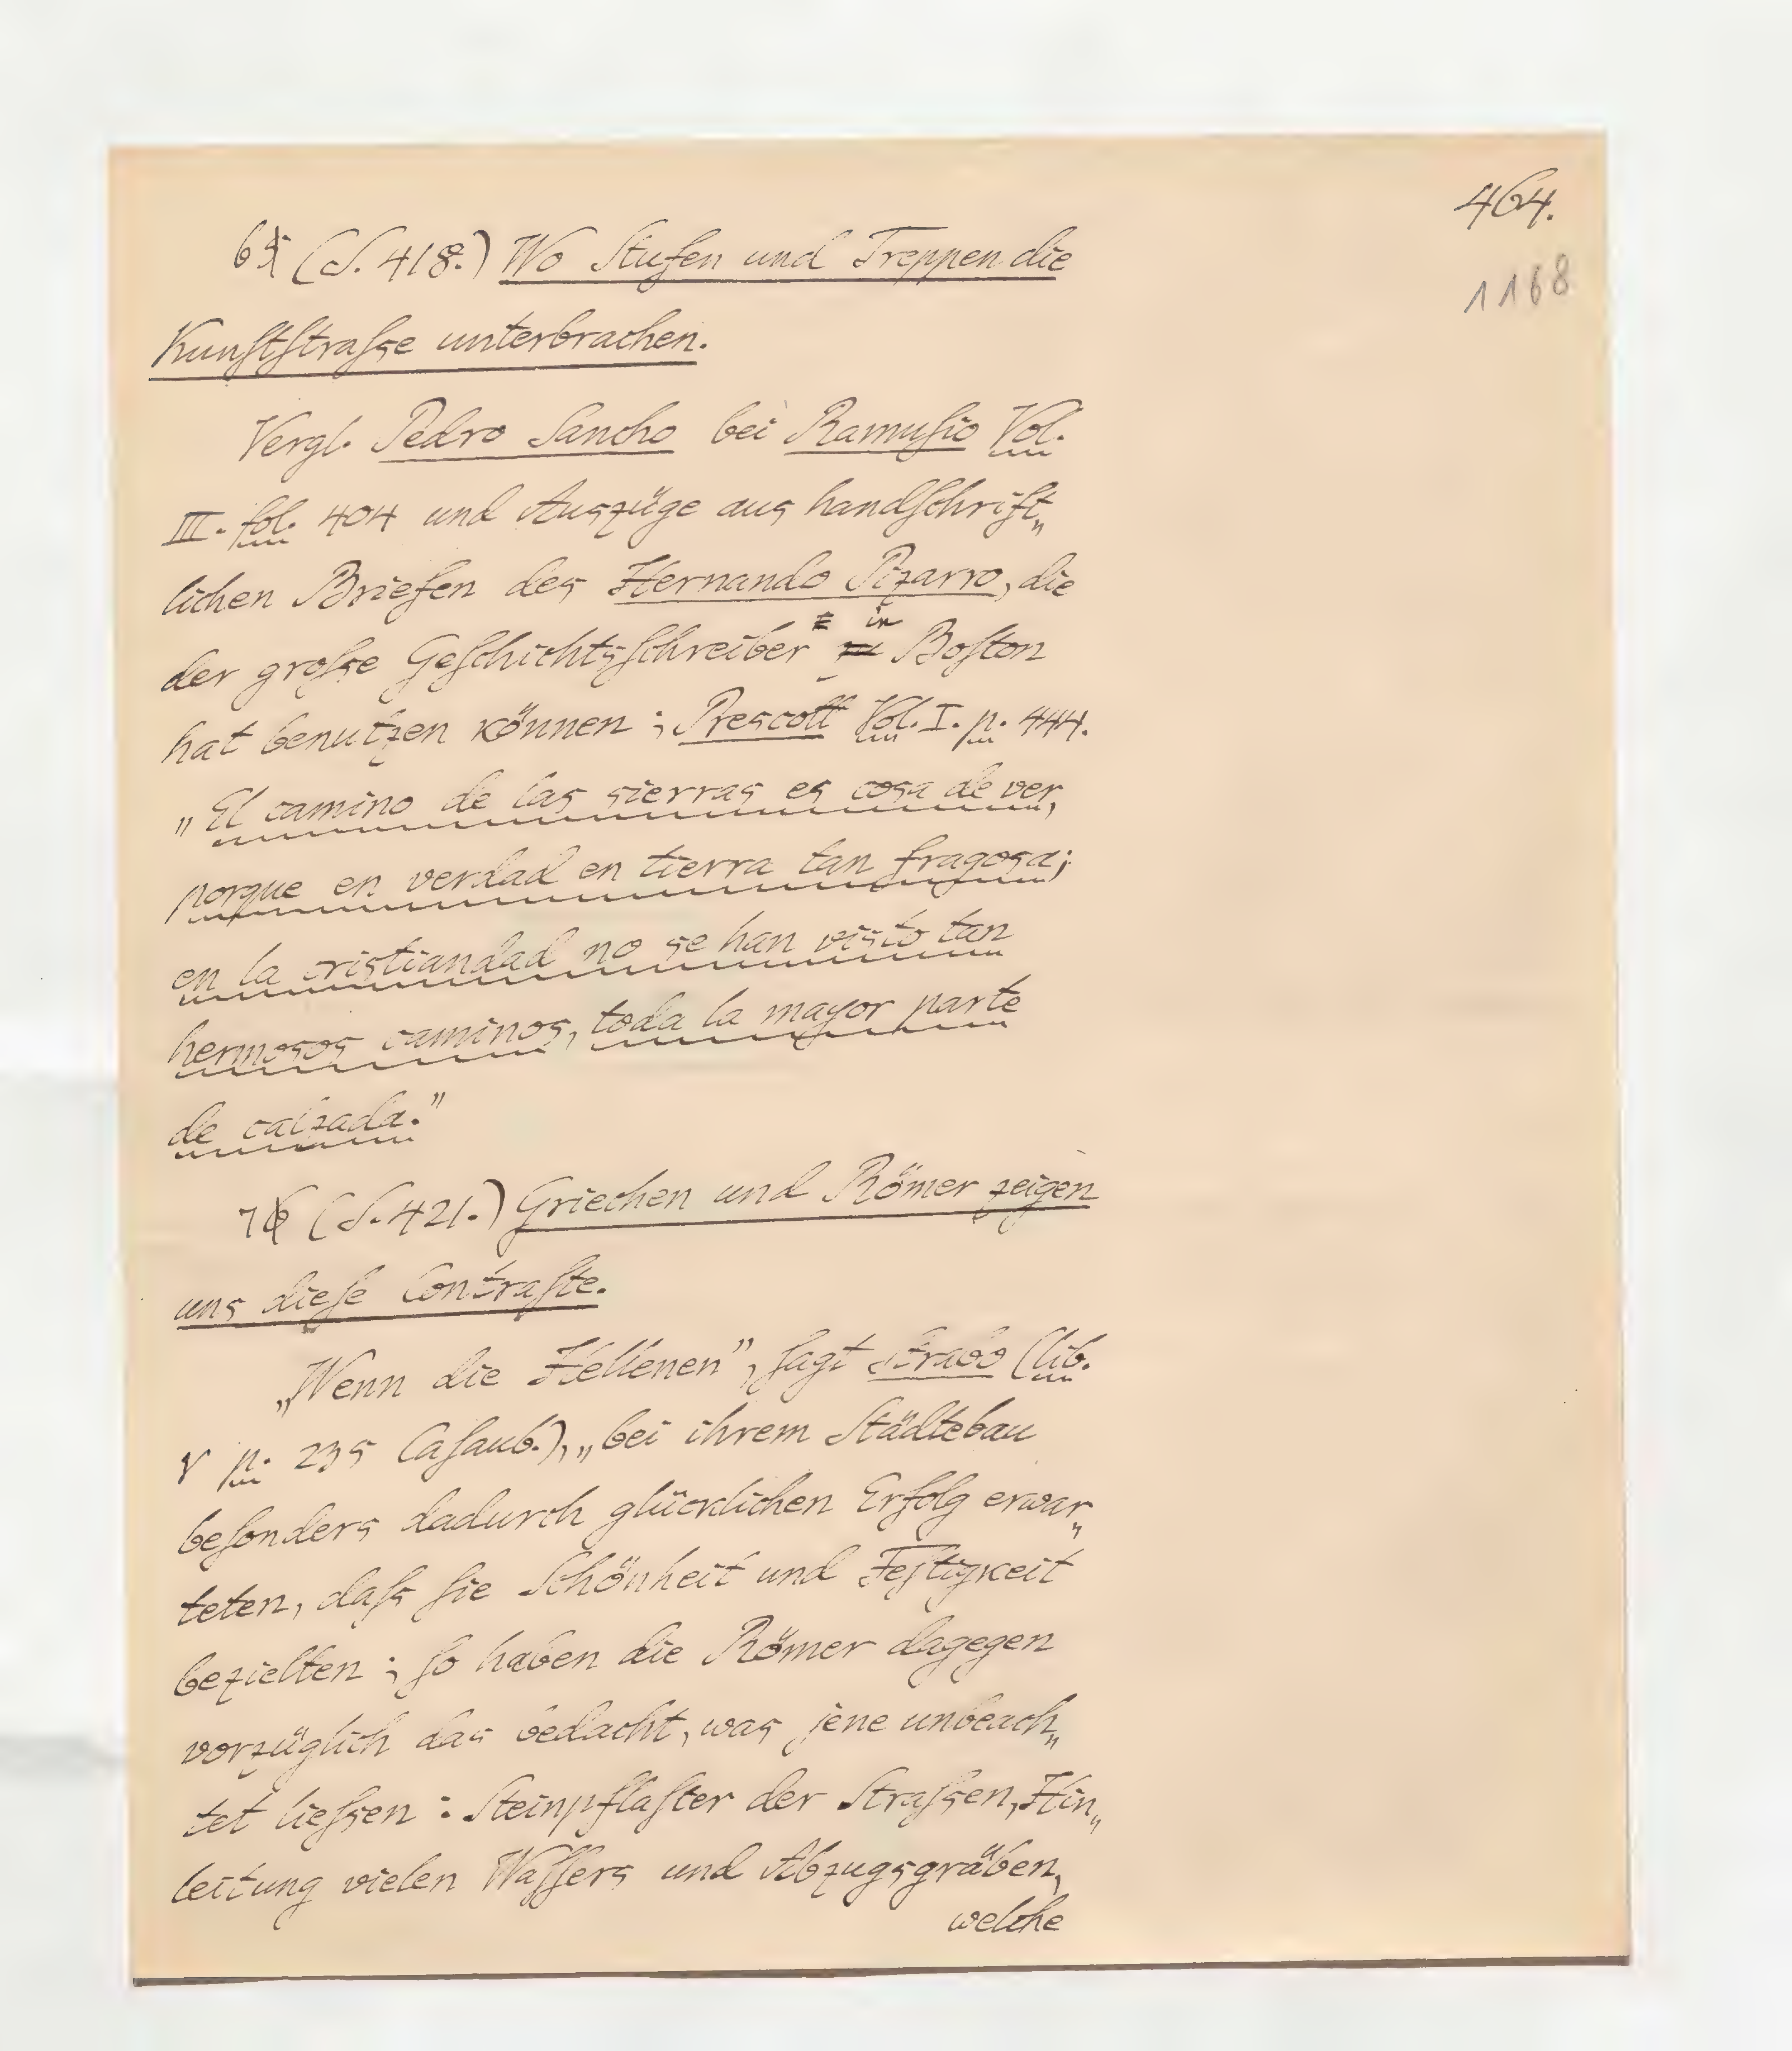 464.
1168
65 (S. 418.) Wo Stufen und Treppen die
Kunſtſtraſse unterbrachen.
Vergl. Pedro Sancho bei Ramuſio Vol.
III. fol. 404 und Auszüge aus handſchrift„
lichen Briefen des Hernando Pizarro, die
der groſse Geſchichtsſchreiber in Boſton
hat benutzen können; Prescott Vol. I. p. 444.
„El camino de las sierras es cosa de ver,
porque en verdad en tierra tan fragosa;
en la cristiandad no se han visto tan
hermosos caminos, toda la mayor parte
de calzada."
76 (S. 421.) Griechen und Römer zeigen
uns dieſe Contraſte.
„Wenn die Hellenen", ſagt Strabo (lib.
V p. 235 Caſaub.), „bei ihrem Städtebau
beſonders dadurch glücklichen Erfolg erwar„
teten, daſs ſie Schönheit und Feſtigkeit
bezielten; ſo haben die Römer dagegen
vorzüglich das bedacht, was jene unbeach„
tet lieſsen: Steinpflaſter der Straſsen, Hin„
leitung vielen Waſſers und Abzugsgräben,
welche